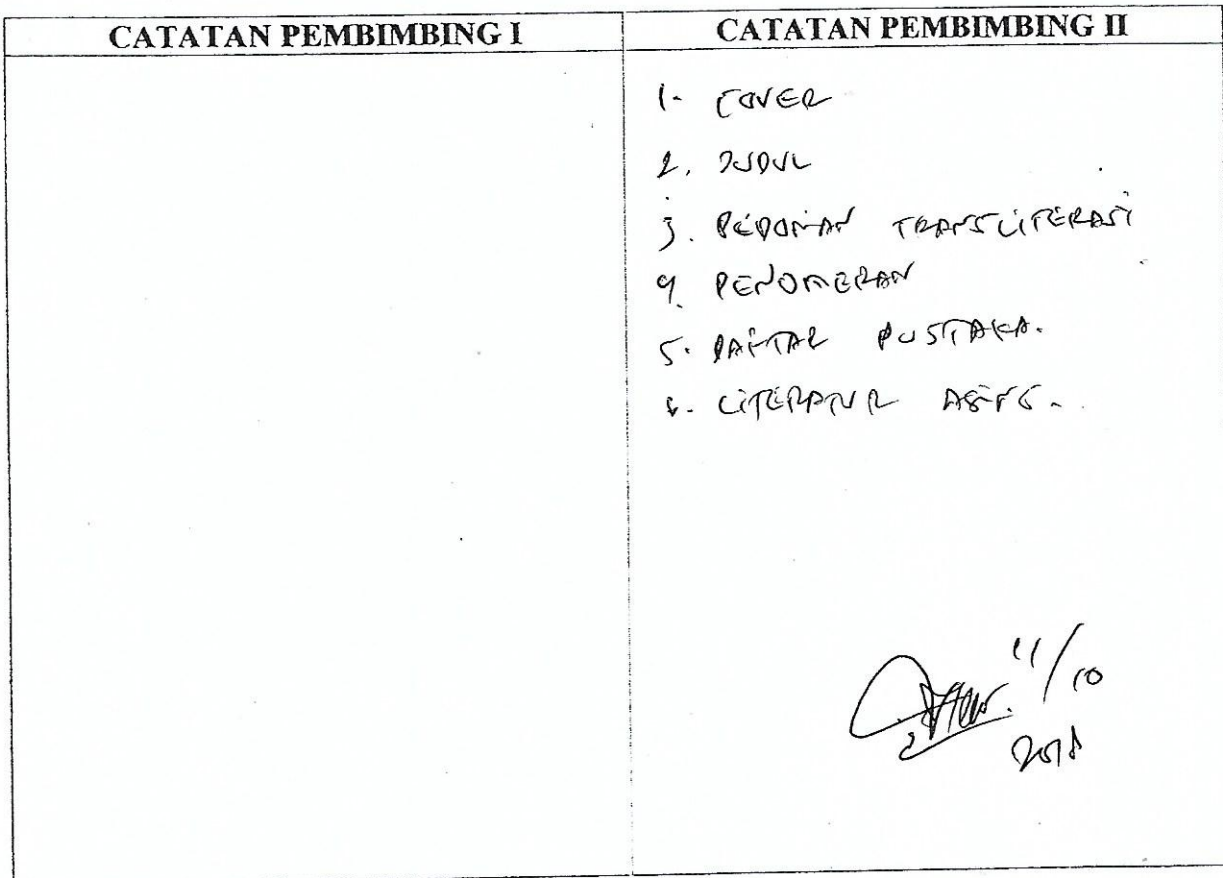 CATATAN PEMBIMBING I
CATATAN PEMBIMBING II
1. COVER
2. JUDUL
3. PEDOMAN TRANSLITERASI
4. PENOMERAN
5. DAFTAR PUSTAKA.
6. LITERATUR ASING.
11/10
2018